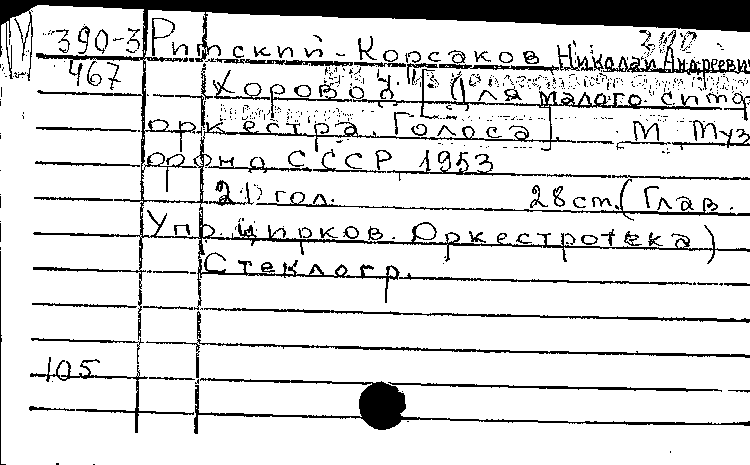 390-3 Римский-Корсаков Николай Андреевич
467 Хоровод. [Для малого симф.
оркестра. Голоса]. М., Муз
фонд СССР, 1953
21 гол. 28 cm. (Глав.
Упр. цирков. Оркестротека)
Стеклогр.
105